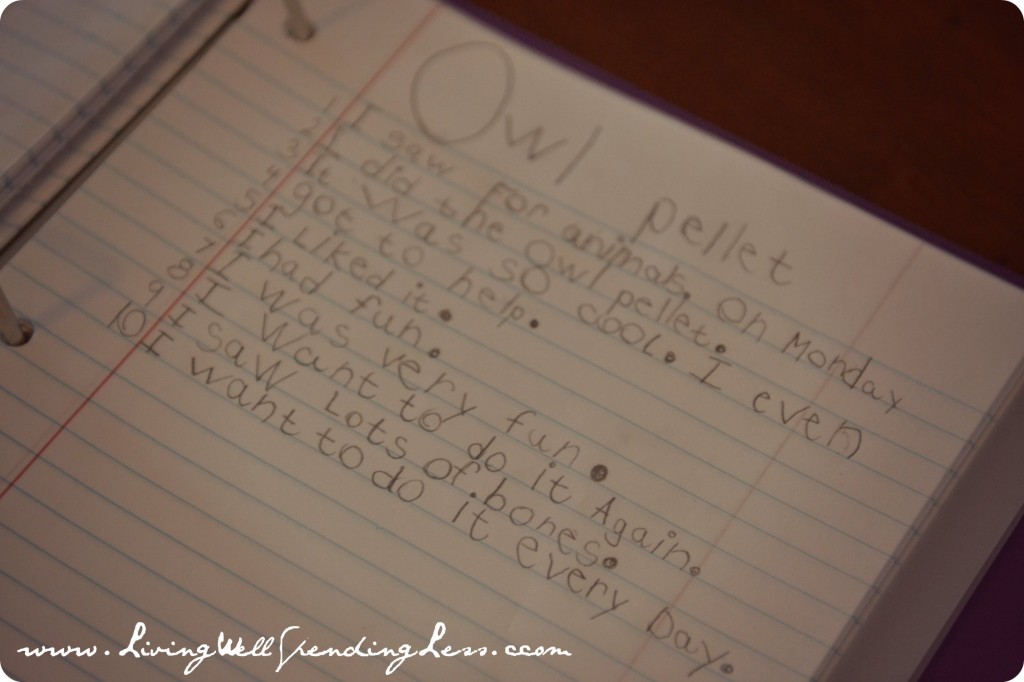 Owl pellet
1 I saw for animals. On Monday
2 I did the Owl pellet.
3 It Was so cool. I even
4 got to help.
5 I Liked it.
6 I had fun.
7 I was very fun.
8 I Want to do it Again.
9 I saw Lots of bones.
10 I want to do it every Day.
www.LivingWellSpendingLess.com